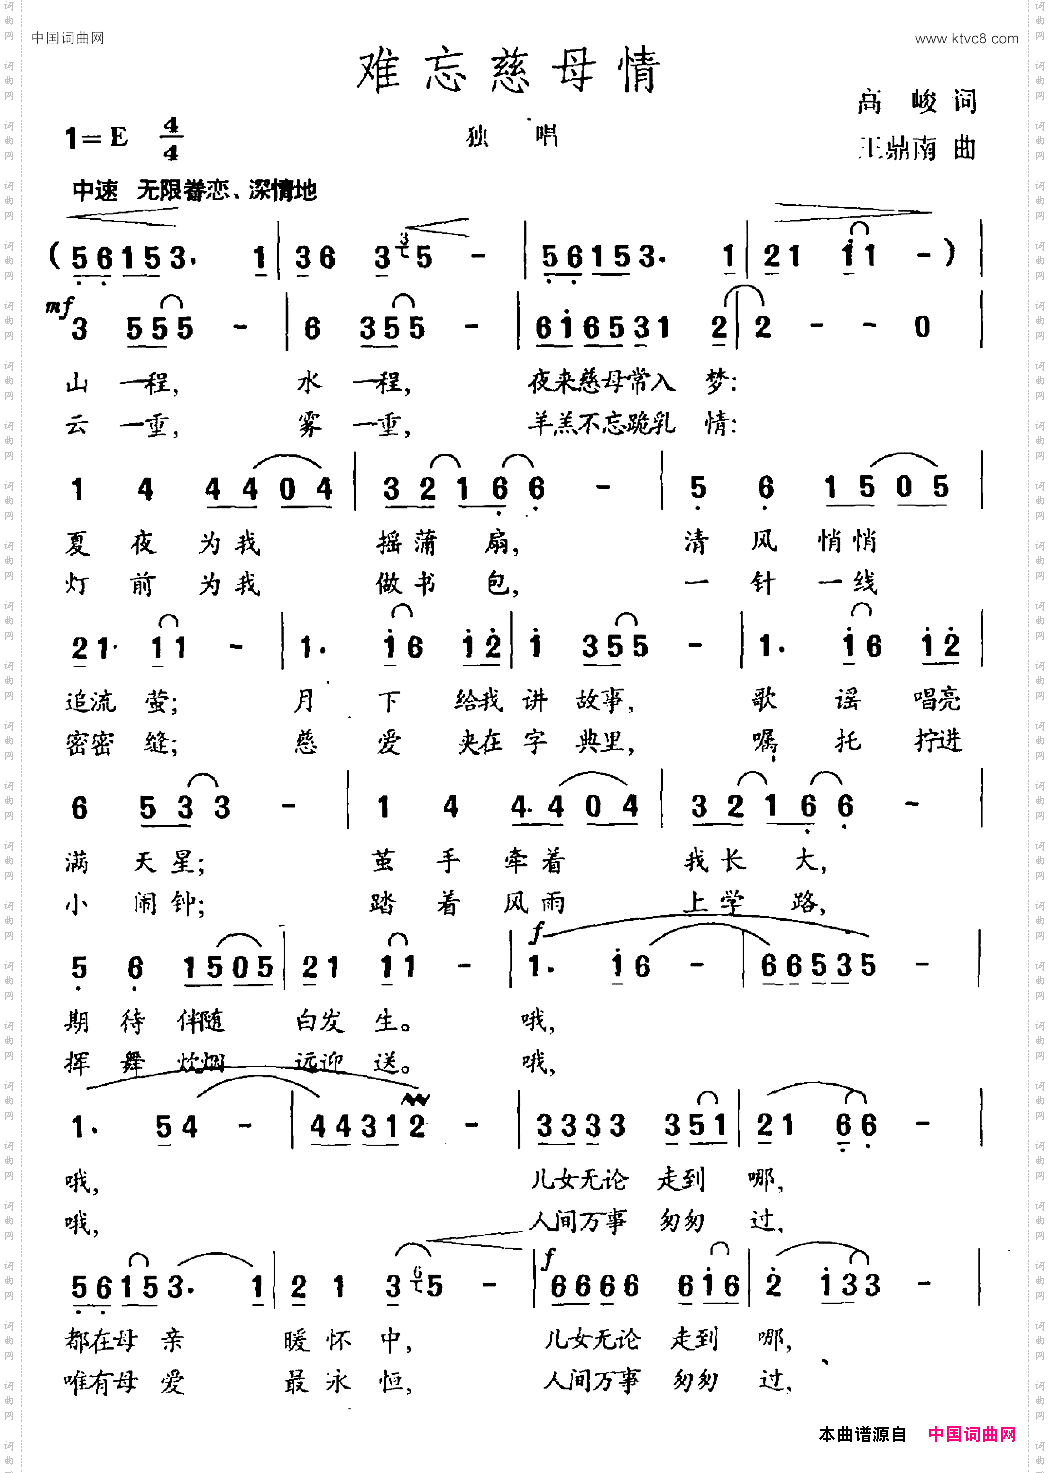 中国词曲网 www.ktvc8.com
难忘慈母情
高峻词
1=E 4/4 独唱
王鼎南曲
中速 无限眷恋、深情地
(56153. 1|36 3 3 5 -|56153. 1|21 i1 -)
mf
3 555 -|6 355 -|6i6531 2|2 - - 0
山一程, 水一程, 夜来慈母常入梦:
云一重, 雾一重, 羊羔不忘跪乳情:
1 4 4404|32166 -|5 6 1505|
夏夜为我 摇蒲扇, 清风悄悄
灯前为我 做书包, 一针一线
21· 11 -|1. i6 i2|i 355 -|1. i6 i2|
追流萤; 月下给我讲故事, 歌谣唱亮
密密缝; 慈爱夹在字典里, 嘱托拧进
6 533 -|1 4 4·404|32166 -
满天星; 茧手牵着 我长大,
小闹钟; 踏着风雨 上学路,
f
5 6 1505|21 11 -|1. i6 -|66535 -|
期待伴随 白发生。 哦,
挥舞炊烟 远迎送。 哦,
1. 54 -|44312 -|3333 351|21 66 -|
哦, 儿女无论走到哪,
哦, 人间万事匆匆过,
f
56153. 1|2 1 3 6 5 -|6666 6i6|2 i33 -|
都在母亲 暖怀中, 儿女无论走到哪,
唯有母爱 最永恒, 人间万事匆匆过,
本曲谱源自 中国词曲网